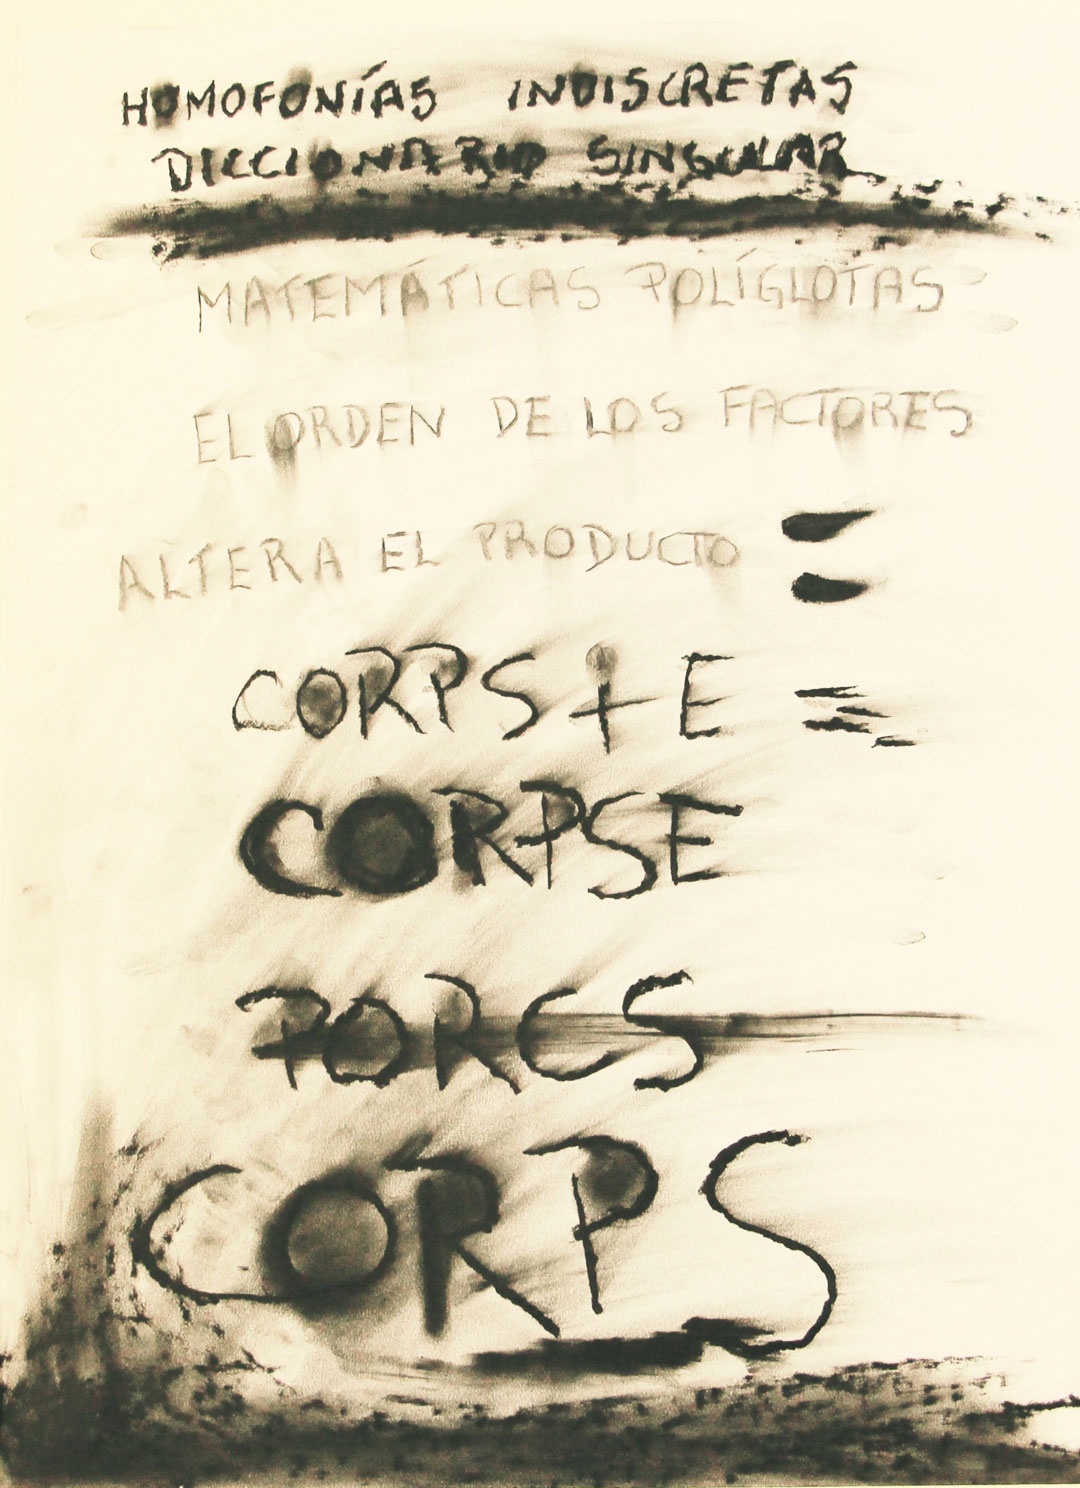 HOMOFONÍAS INDISCRETAS
DICCIONARIO SINGULAR
MATEMÁTICAS POLÍGLOTAS
EL ORDEN DE LOS FACTORES
ALTERA EL PRODUCTO =
CORPS + E =
CORPSE
PORCS
CORPS